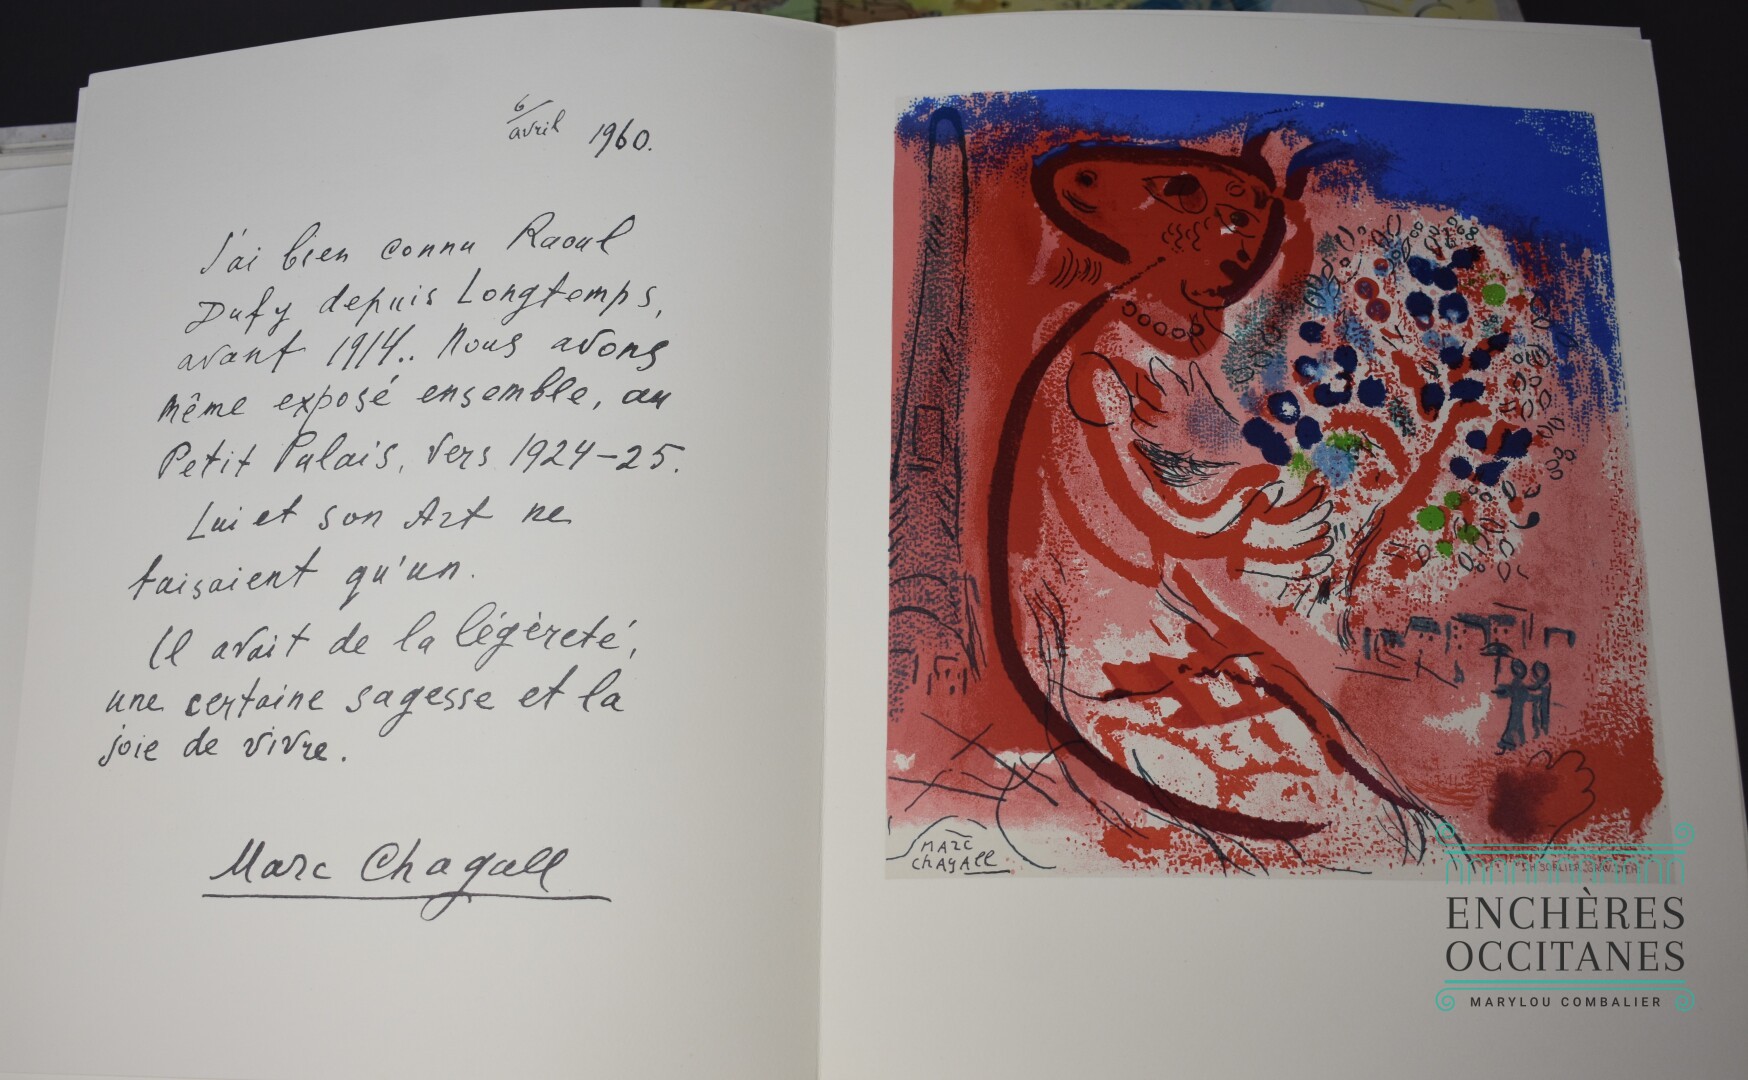 6/avril 1960.
J'ai bien connu Raoul
Dufy depuis Longtemps,
avant 1914.. Nous avons
même exposé ensemble, au
Petit Palais, vers 1924-25.
Lui et son Art ne
faisaient qu'un.
Il avait de la légèreté,
une certaine sagesse et la
joie de vivre.
Marc Chagall
MARC
CHAGALL
CH. SORLIER. GRAV. LITH
ENCHÈRES
OCCITANES
MARYLOU COMBALIER